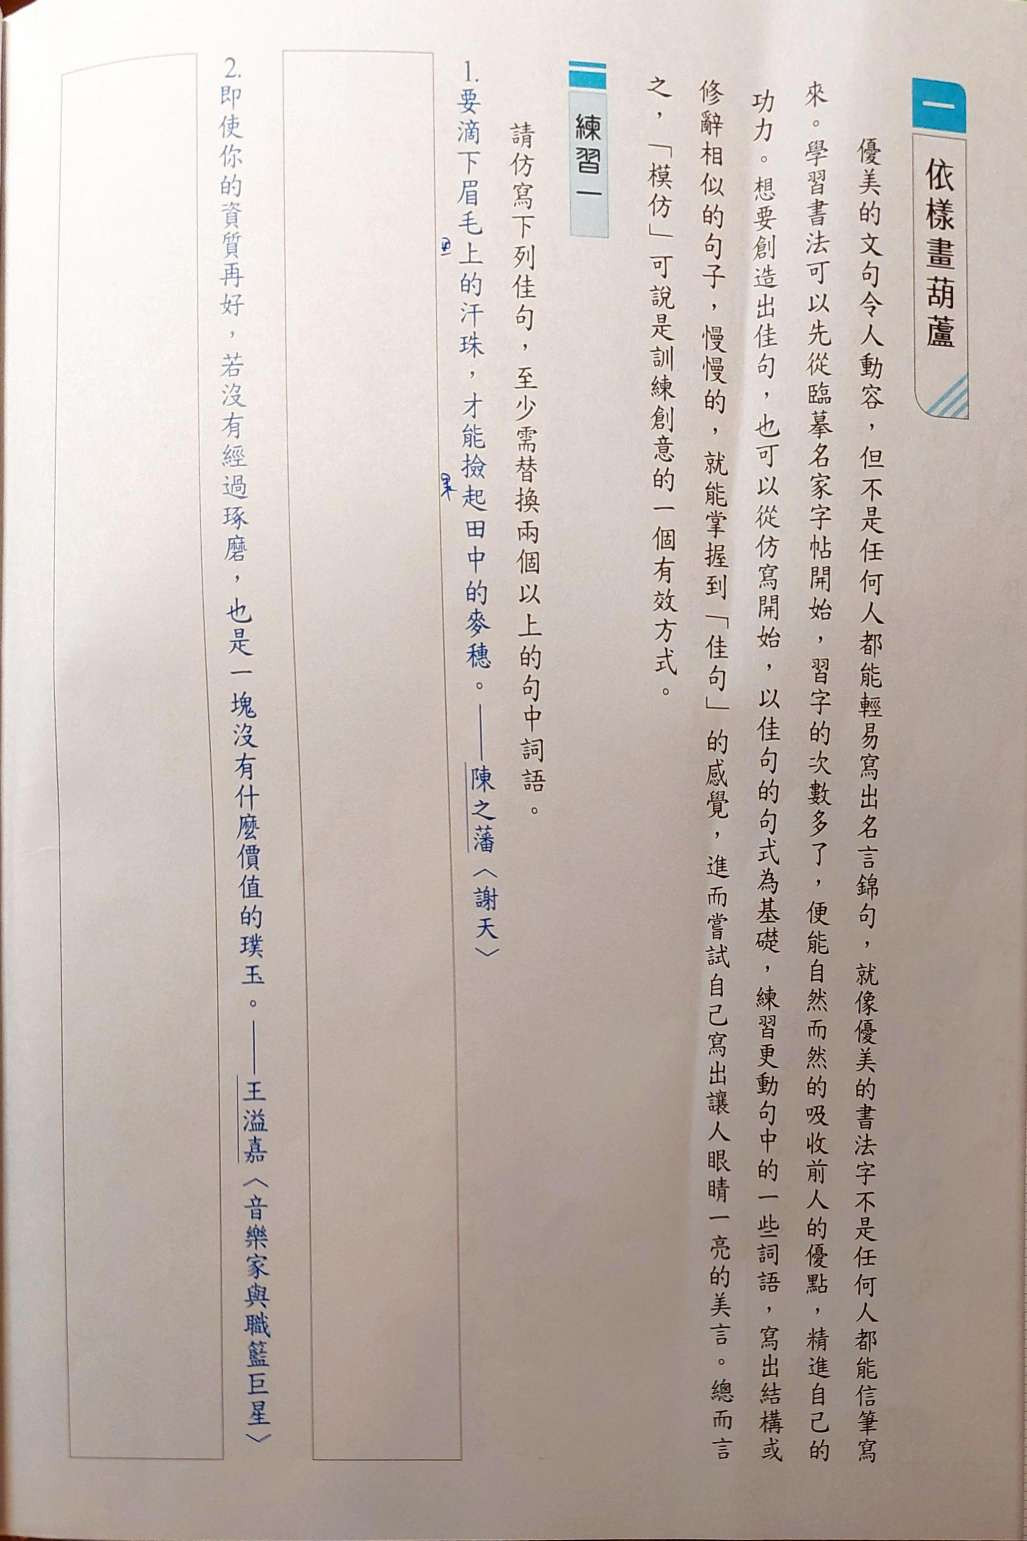 一 依樣畫葫蘆
優美的文句令人動容，但不是任何人都能輕易寫出名言錦句，就像優美的書法字不是任何人都能信筆寫
來。學習書法可以先從臨摹名家字帖開始，習字的次數多了，便能自然而然的吸收前人的優點，精進自己的
功力。想要創造出佳句，也可以從仿寫開始，以佳句的句式為基礎，練習更動句中的一些詞語，寫出結構或
修辭相似的句子，慢慢的，就能掌握到「佳句」的感覺，進而嘗試自己寫出讓人眼睛一亮的美言。總而言
之，「模仿」可說是訓練創意的一個有效方式。
練習一
請仿寫下列佳句，至少需替換兩個以上的句中詞語。
1.要滴下眉毛上的汗珠，才能撿起田中的麥穗。——陳之藩〈謝天〉
因
果
2.即使你的資質再好，若沒有經過琢磨，也是一塊沒有什麼價值的璞玉。——王溢嘉〈音樂家與職籃巨星〉